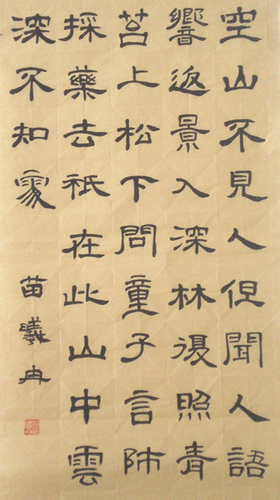 空山不見人但聞人語
響返景入深林復照青
苔上松下問童子言師
採藥去祇在此山中雲
深不知處
苗曦冉